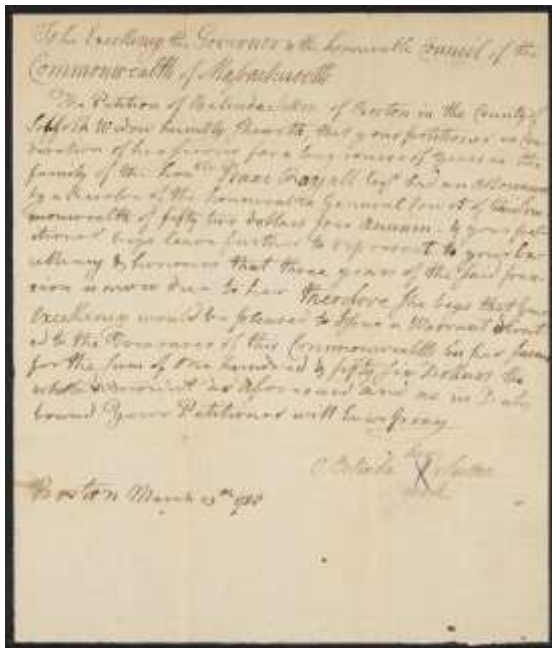 To his Excellency the Governor & the honourable Council of the
Commonwealth of Massachusetts
The Petition of Belinda of Boston in the County of
Suffolk Widow humbly Sheweth, that your petitioner in
of her services for a long course of years in the
family of the Honble Isaac Royall Esqr had an allowance
by a Resolve of the honourable General Court of
monwealth of fifty two dollars per annum. & your peti
tioner begs leave further to represent to your Ex
cellency & honours that three years of the said
now due to her therefore She begs that your
Excellency would be pleased to Issue a Warrant direct
ed to the Treasurer of this Commonwealth in her favour
for the Sum of One hundred & fifty Six Dollars the
whole amount as aforesaid and as in Duty
bound Your Petitioner will Ever pray
Belinda her X
mark
Boston March